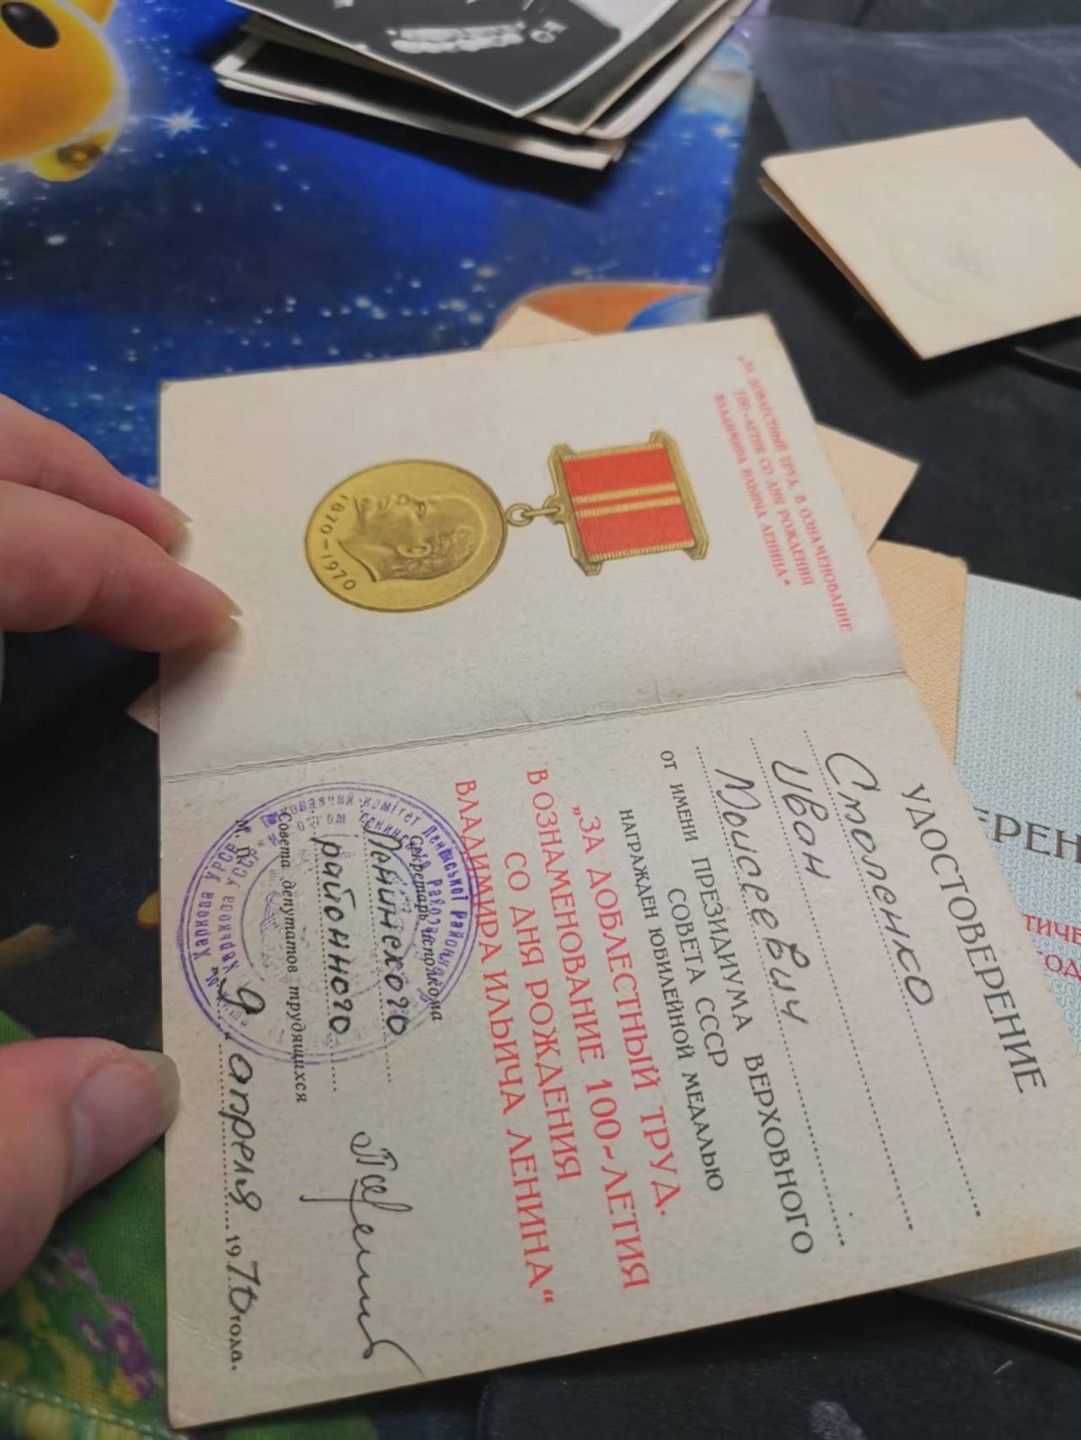 „ЗА ДОБЛЕСТНЫЙ ТРУД. В ОЗНАМЕНОВАНИЕ
100-ЛЕТИЯ СО ДНЯ РОЖДЕНИЯ
ВЛАДИМИРА ИЛЬИЧА ЛЕНИНА“
1870-1970
УДОСТОВЕРЕНИЕ
Столенко
Иван
Моисеевич
ОТ ИМЕНИ ПРЕЗИДИУМА ВЕРХОВНОГО
СОВЕТА СССР
НАГРАЖДЕН ЮБИЛЕЙНОЙ МЕДАЛЬЮ
„ЗА ДОБЛЕСТНЫЙ ТРУД.
В ОЗНАМЕНОВАНИЕ 100-ЛЕТИЯ
СО ДНЯ РОЖДЕНИЯ
ВЛАДИМИРА ИЛЬИЧА ЛЕНИНА“
Секретарь исполкома
Ленинского
районного
Совета депутатов трудящихся
М. П.
„9“ апреля 1970 года.
комітет Ленінської Районної
м. Харкова УРСР
Харькова УССР
ЕРЕН
ТИЧЕ
ОД